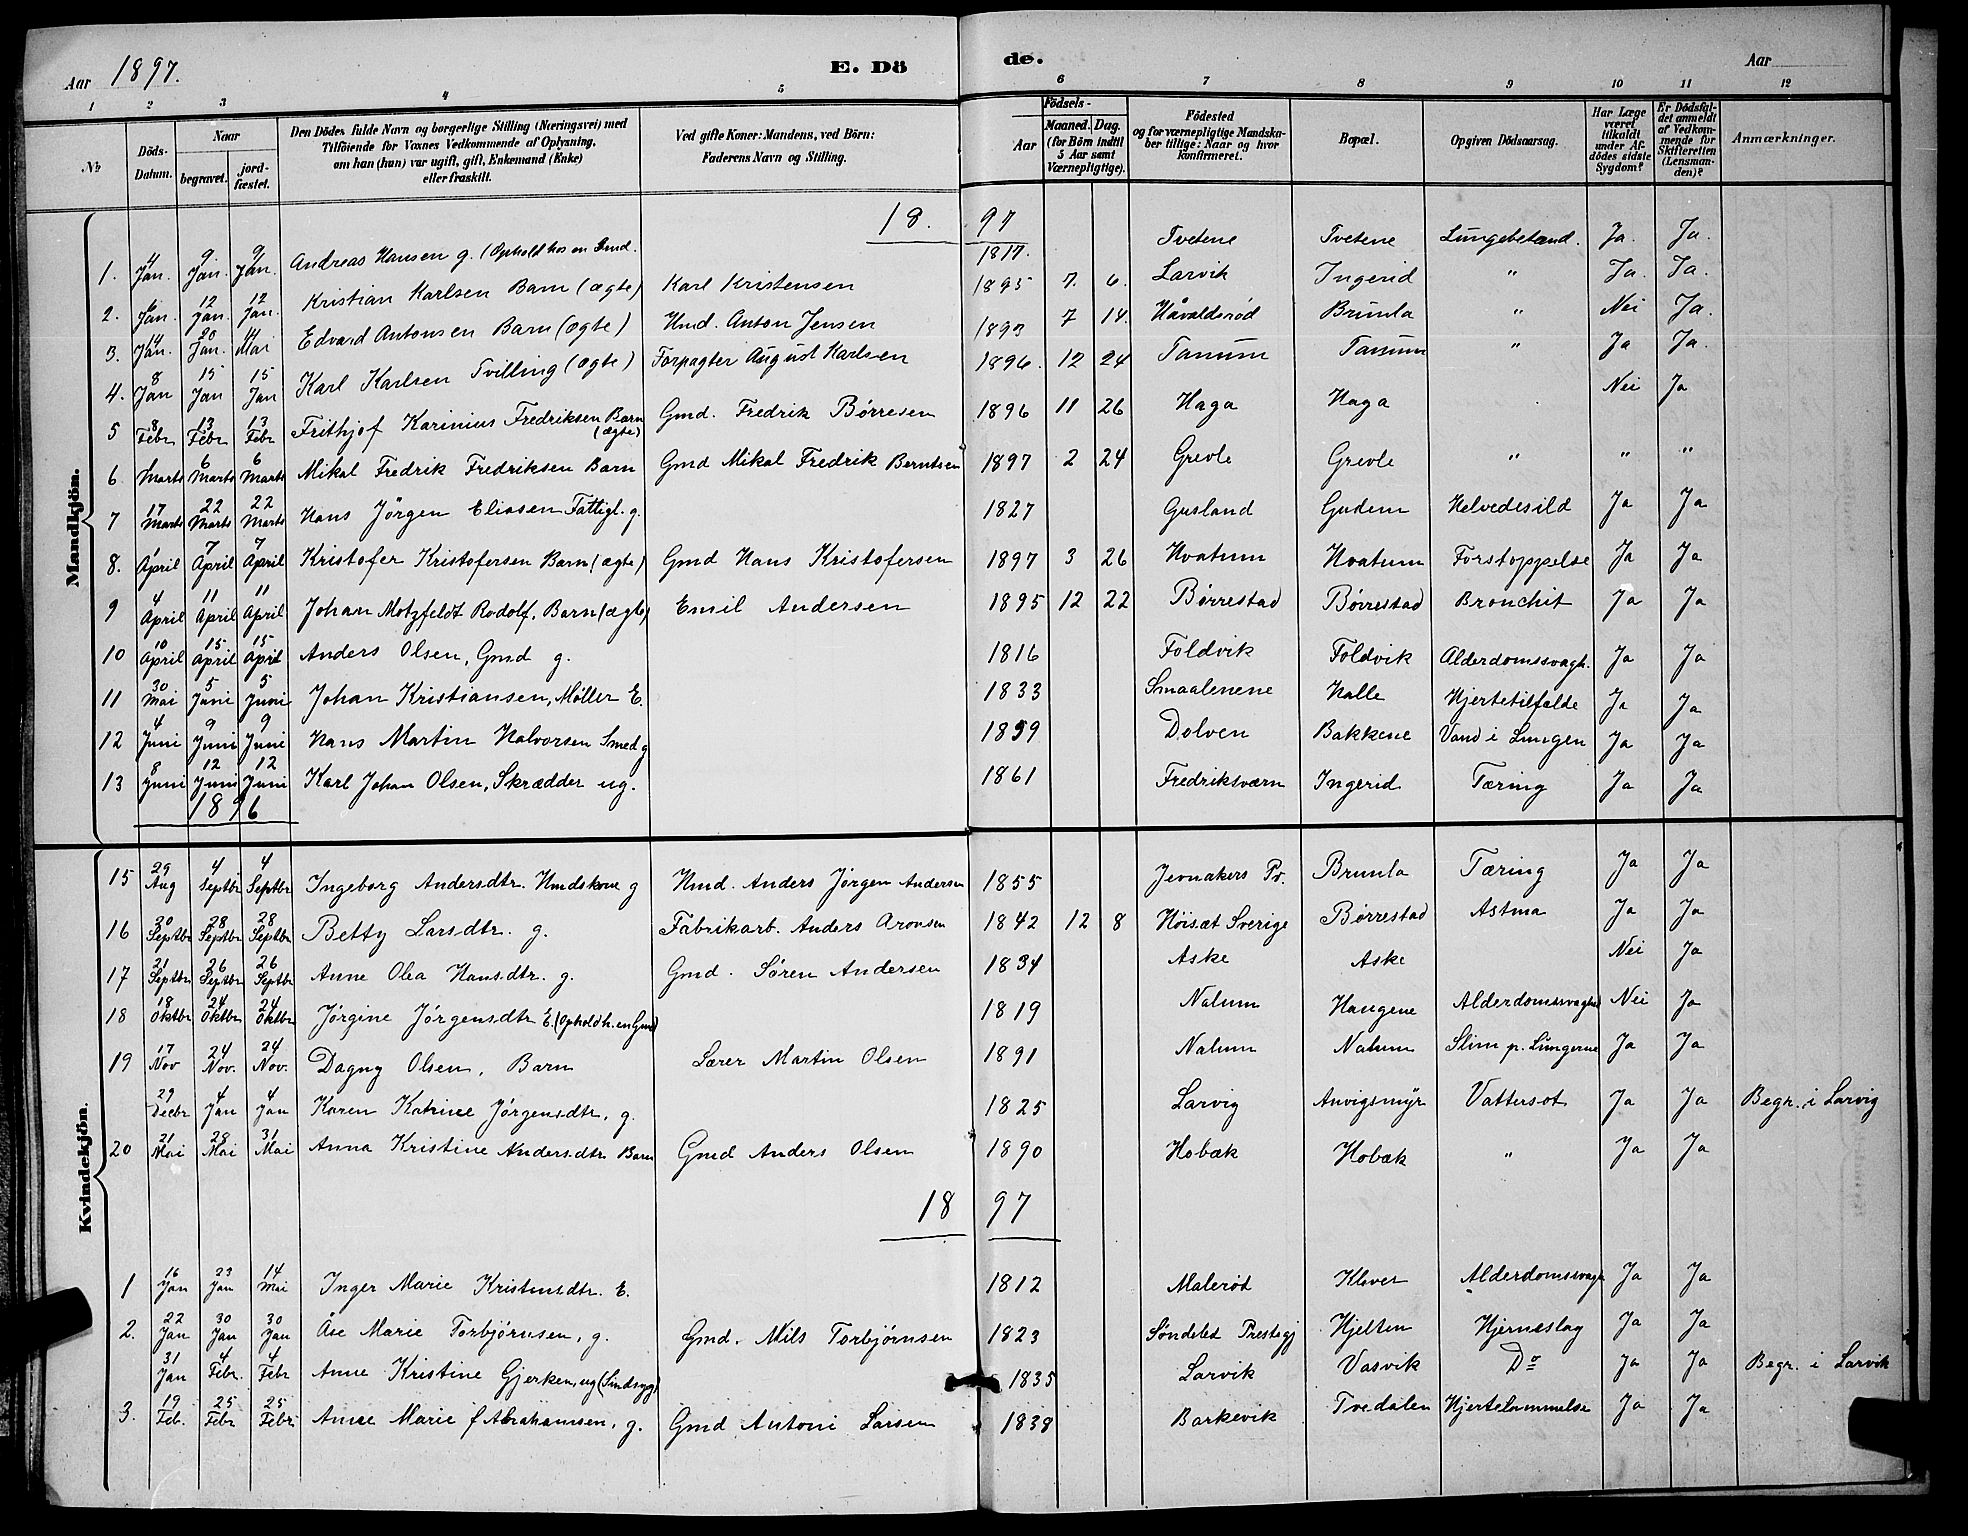 Aar 1897. E. Dö de. Aar
1 2 3 4 5 6 7 8 9 10 11 12
No
Döds-Datum.
Naar
begravet.
jord-fæstet.
Den Dödes fulde Navn og borgerlige Stilling (Næringsvei) med
Tilföiende for Voxnes Vedkommende af Oplysning,
om han (hun) var ugift, gift, Enkemand (Enke)
eller fraskilt.
Ved gifte Koner: Mandens, ved Börn:
Faderens Navn og Stilling.
Födsels-
Aar
Maaned. Dag.
(for Börn indtil
5 Aar samt
Værnepligtige).
Födested
og for værnepligtige Mandska-
ber tillige: Naar og hvor
konfirmeret.
Bopæl.
Opgiven Dödsaarsag.
Har Læge
været
tilkaldt
under Af-
dödes sidste
Sygdom?
Er Dödsfal-
det anmeldt
af Vedkom-
mende for
Skifteretten
(Lensman-
den)?
Anmærkninger.
Mandkjön.
18. 97
1. 4 Jan. 9 Jan. 9 Jan. Andreas Hansen g. (Ophold hos en Gmd. 1817. Tvetene Tvetene Lungebetænd. Ja. Ja.
2. 6 Jan. 12 Jan. 12 Jan. Kristian Karlsen Barn (ægte) Karl Kristensen 1895 7. 6. Larvik Ingerid " Ja. Ja.
3. 14 Jan. 20 Jan. 14 Mai Edvard Antonsen Barn (ægte) Hmd. Anton Jensen 1893 7 14. Håvaldsrød Brunla " Nei Ja.
4. 8 Jan 15 Jan 15 Jan Karl Karlsen Tvilling (ægte) Forpagter August Karlsen 1896. 12 24 Tanum Tanum " Ja Ja.
5 8 Febr 13 Febr 13 Febr Frithjof Karinius Fredriksen Barn (ægte) Gmd. Fredrik Børresen 1896 11 26 Haga Haga Nei Ja
6 Marts 6 Marts 6 Marts Mikal Fredrik Fredriksen Barn Gmd Mikal Fredrik Berntsen 1897 2 24 Grevle Grevle " " "
7 17 Marts 22 Marts 22 Marts Hans Jørgen Eliasen Fattigl. g. 1827 Gusland Gudem Helvedesild Ja Ja
8. April 7 April 7 April Kristofer Kristofersen Barn (ægte) Gmd Hans Kristofersen 1897 3 26 Hvatum Hvatum Forstoppelse Ja Ja
9 4 April 11 April 11 April Johan Motzfeldt Rodolf. Barn (ægte) Emil Andersen 1895 12 22 Børrestad Børrestad Bronchit Ja Ja
10 10 April 15 April 15 April Anders Olsen, Gmd g. 1816 Foldvik Foldvik Alderdomssvagh. Ja Ja
11 30 Mai 5 Juni 5 Juni Johan Kristiansen, Møller E. 1833 Smaalenene Halle Hjertetilfælde Ja Ja
12 4 Juni 9 Juni 9 Juni Hans Martin Halvorsen Smed g 1859 Dolven Bakkene Vand i Lungen Ja Ja
13 8 Juni 12 Juni 12 Juni Karl Johan Olsen, Skrædder ug. 1861 Fredriksværn Ingerid Tæring Ja Ja
1896
Kvindekjön.
15 29 Aug 4 Septbr 4 Septbr Ingeborg Andersdtr. Hmdskone g Hmd. Anders Jørgen Andersen 1855 Jevnakers Pr. Brunla Tæring Ja Ja
16 20 Septbr 28 Septbr 28 Septbr Betty Larsdtr. g. Fabrikarb. Anders Aronsen 1842 12 8 Höisæt Sverige Børrestad Astma Ja Ja
17 21 Septbr 26 Septbr 26 Septbr Anne Olea Hansdtr. g. Gmd. Søren Andersen 1834 Aske Aske Nei Ja
18 18 Oktbr 24 Oktbr 24 Oktbr Jørgine Jørgensdtr E. (Ophold h. en Gmd) 1819 Nalum Haugene Alderdomssvaghed Nei Ja
19 17 Nov 24 Nov. 24 Nov. Dagny Olsen, Barn Lærer Martin Olsen 1891 Nalum Nalum Slim p. Lungerne Ja Ja
29 Decbr 4 Jan 4 Jan Karen Katrine Jørgensdtr, g. 1825 Larvig Anvigsmyr Vattersot Ja Ja Begr. i Larvig
20 21 Mai 28 Mai 31 Mai Anna Kristine Andersdtr Barn Gmd Anders Olsen 1890 Hobæk Hobæk " Ja Ja
18 97
1 16 Jan 23 Jan 14 Mai Inger Marie Kristensdtr. E. 1812 Malerøt Kløver Alderdomssvagh Ja Ja
2. 22 Jan 30 Jan 30 Jan Åse Marie Torbjørnsen, g. Gmd. Nils Torbjørnsen 1823 Søndeled Prestegj Hjelten Hjerneslag Ja Ja
31 Jan 4 Febr. 4 Febr Anne Kristine Gjerken, ug (Sindsyg) 1835 Larvik Vasvik Do Ja Ja Begr. i Larvik
3. 19 Feb. 25 Febr 25 Febr. Anne Marie f Abrahamsen, g. Gmd Antoni Larsen 1838 Barkevik Tvedalen Hjertelammelse Ja Ja